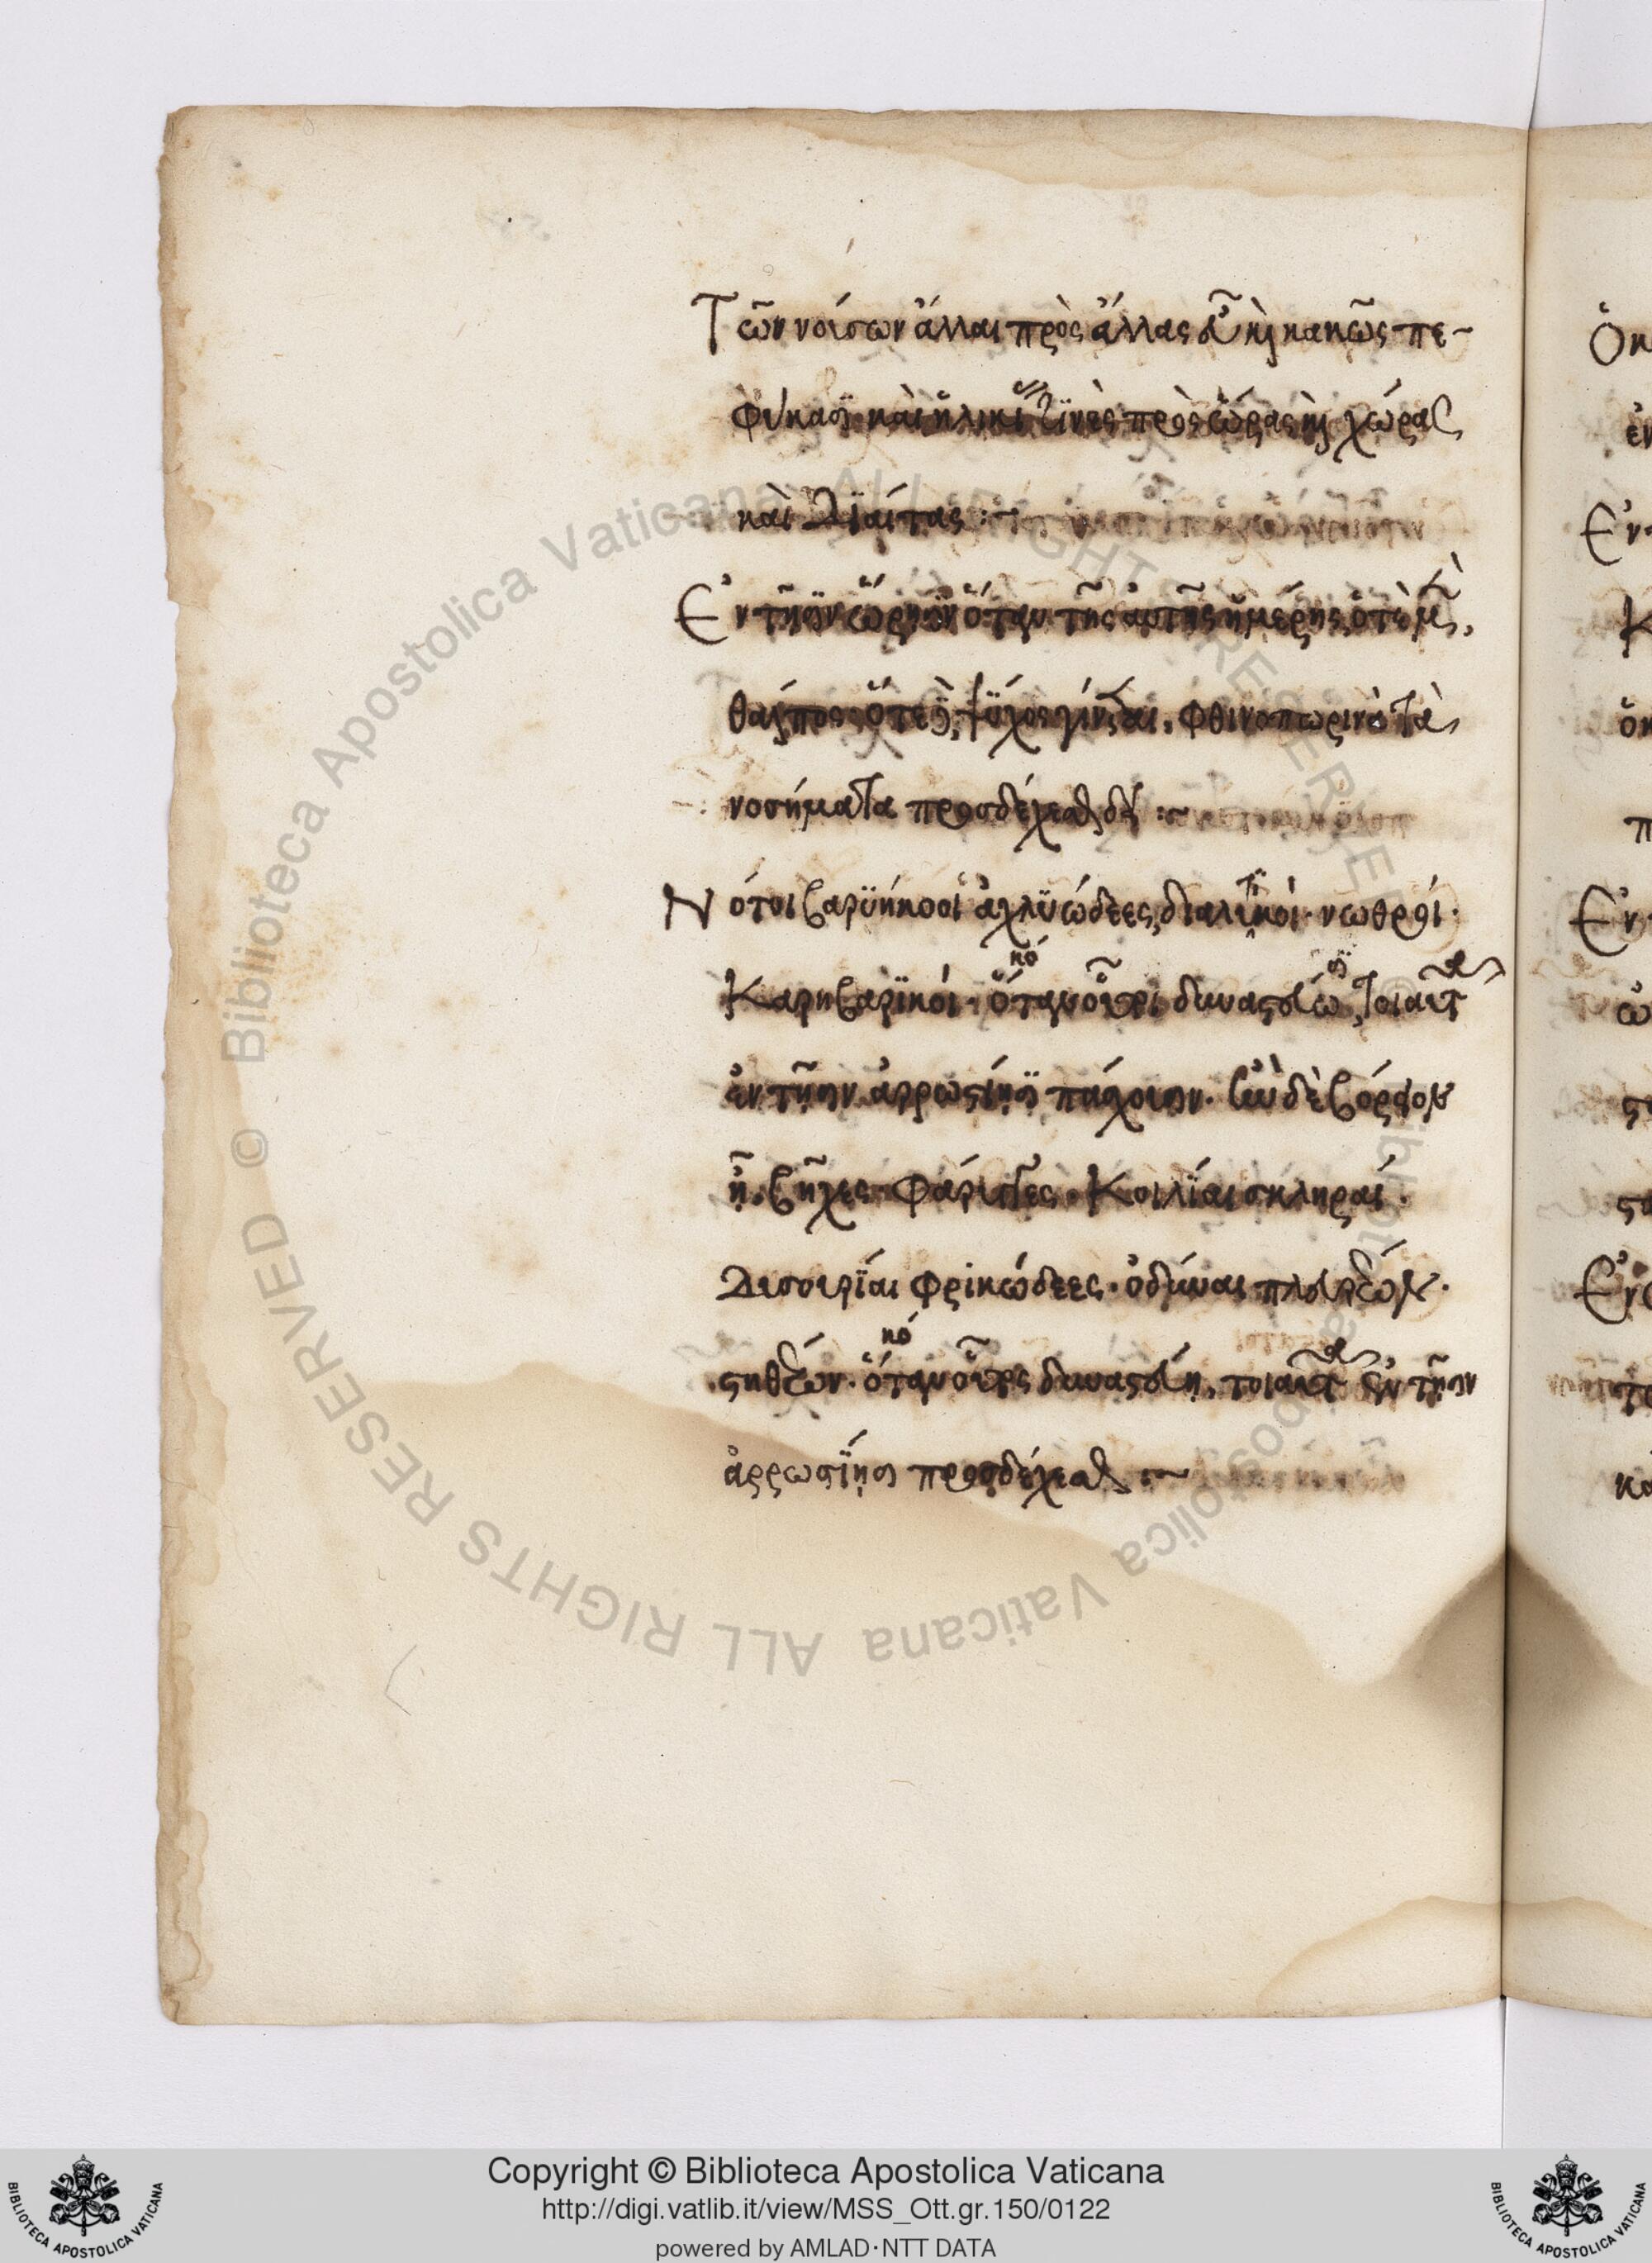 Τῶν νούσων ἄλλαι πρὸς ἄλλας εὖ καὶ κακῶς πε-
φύκασι καὶ ἡλικίαι τινὲς πρὸς ὥρας καὶ χώρας
καὶ διαίτας :~
Ἐν τῇσιν ὥρῃσιν ὅταν τῆς αὐτῆς ἡμέρης ὁτὲ μὲν
θάλπος ὁτὲ δὲ ψύχος γίνεται, φθινοπωρινὰ τὰ
νοσήματα προσδέχεσθαι δεῖ :~
Νότοι βαρυήκοοι ἀχλυώδεες, διαλυτικοί· νωθροί·
Καρηβαρικοί· ὁκόταν οὗτοι δυναστεύωσι, τοιαῦτα
ἐν τῇσιν ἀρρωστίῃσι πάσχουσιν. ἢν δὲ βόρειον
ᾖ, βῆχες· φάρυγγες· Κοιλίαι σκληραί·
Δυσουρίαι φρικώδεες· ὀδύναι πλευρέων·
στηθέων· ὁκόταν οὗτος δυναστεύῃ, τοιαῦτα ἐν τῇσιν
ἀρρωστίῃσι προσδέχεσθαι :~
Copyright © Biblioteca Apostolica Vaticana
http://digi.vatlib.it/view/MSS_Ott.gr.150/0122
powered by AMLAD·NTT DATA
BIBLIOTECA APOSTOLICA VATICANA
BIBLIOTECA APOSTOLICA VATICANA
© Biblioteca Apostolica Vaticana ALL RIGHTS RESERVED
© Biblioteca Apostolica Vaticana ALL RIGHTS RESERVED